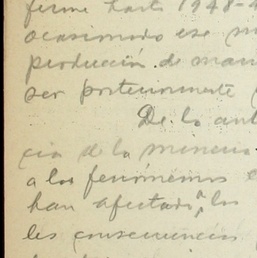 firme hasta 1948-4
ocasionado ese m
producción de man
ser posteriormente
De lo ant
cia de la minería
a los fenómenos e
han afectado a los
les consecuencias